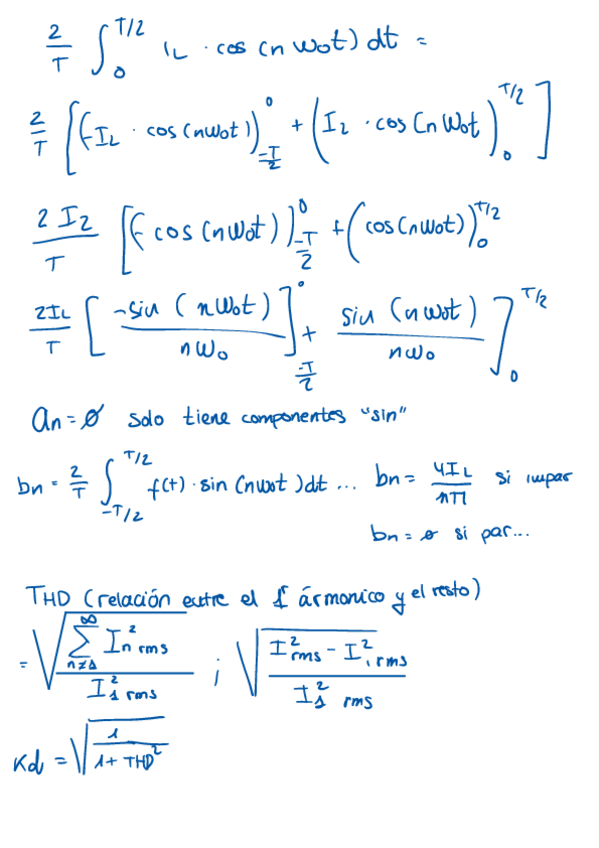 2/T ∫₀^{T/2} IL · cos (n Wot) dt =
2/T [(-IL · cos (nWot))_{-T/2}^{0} + (I2 · cos (n Wot)_{0}^{T/2}]
2 I2/T [(- cos (nWot))]_{-T/2}^{0} + (cos (nWot))_{0}^{T/2}
2IL/T [-sin (nWot)/nWo]_{-T/2}^{0} + sin (nwot)/nwo]_{0}^{T/2}
an = ∅ solo tiene componentes "sin"
bn = 2/T ∫_{-T/2}^{T/2} f(t) · sin (nwot) dt ... bn = 4IL/nπ si impar
bn = ∅ si par...
THD (relación entre el 1 ármonico y el resto)
= √(∑_{n≠1}^{∞} In² rms / I1² rms) ; √(I²rms - I²1 rms / I1² rms)
Kd = √(1/1+ THD²)